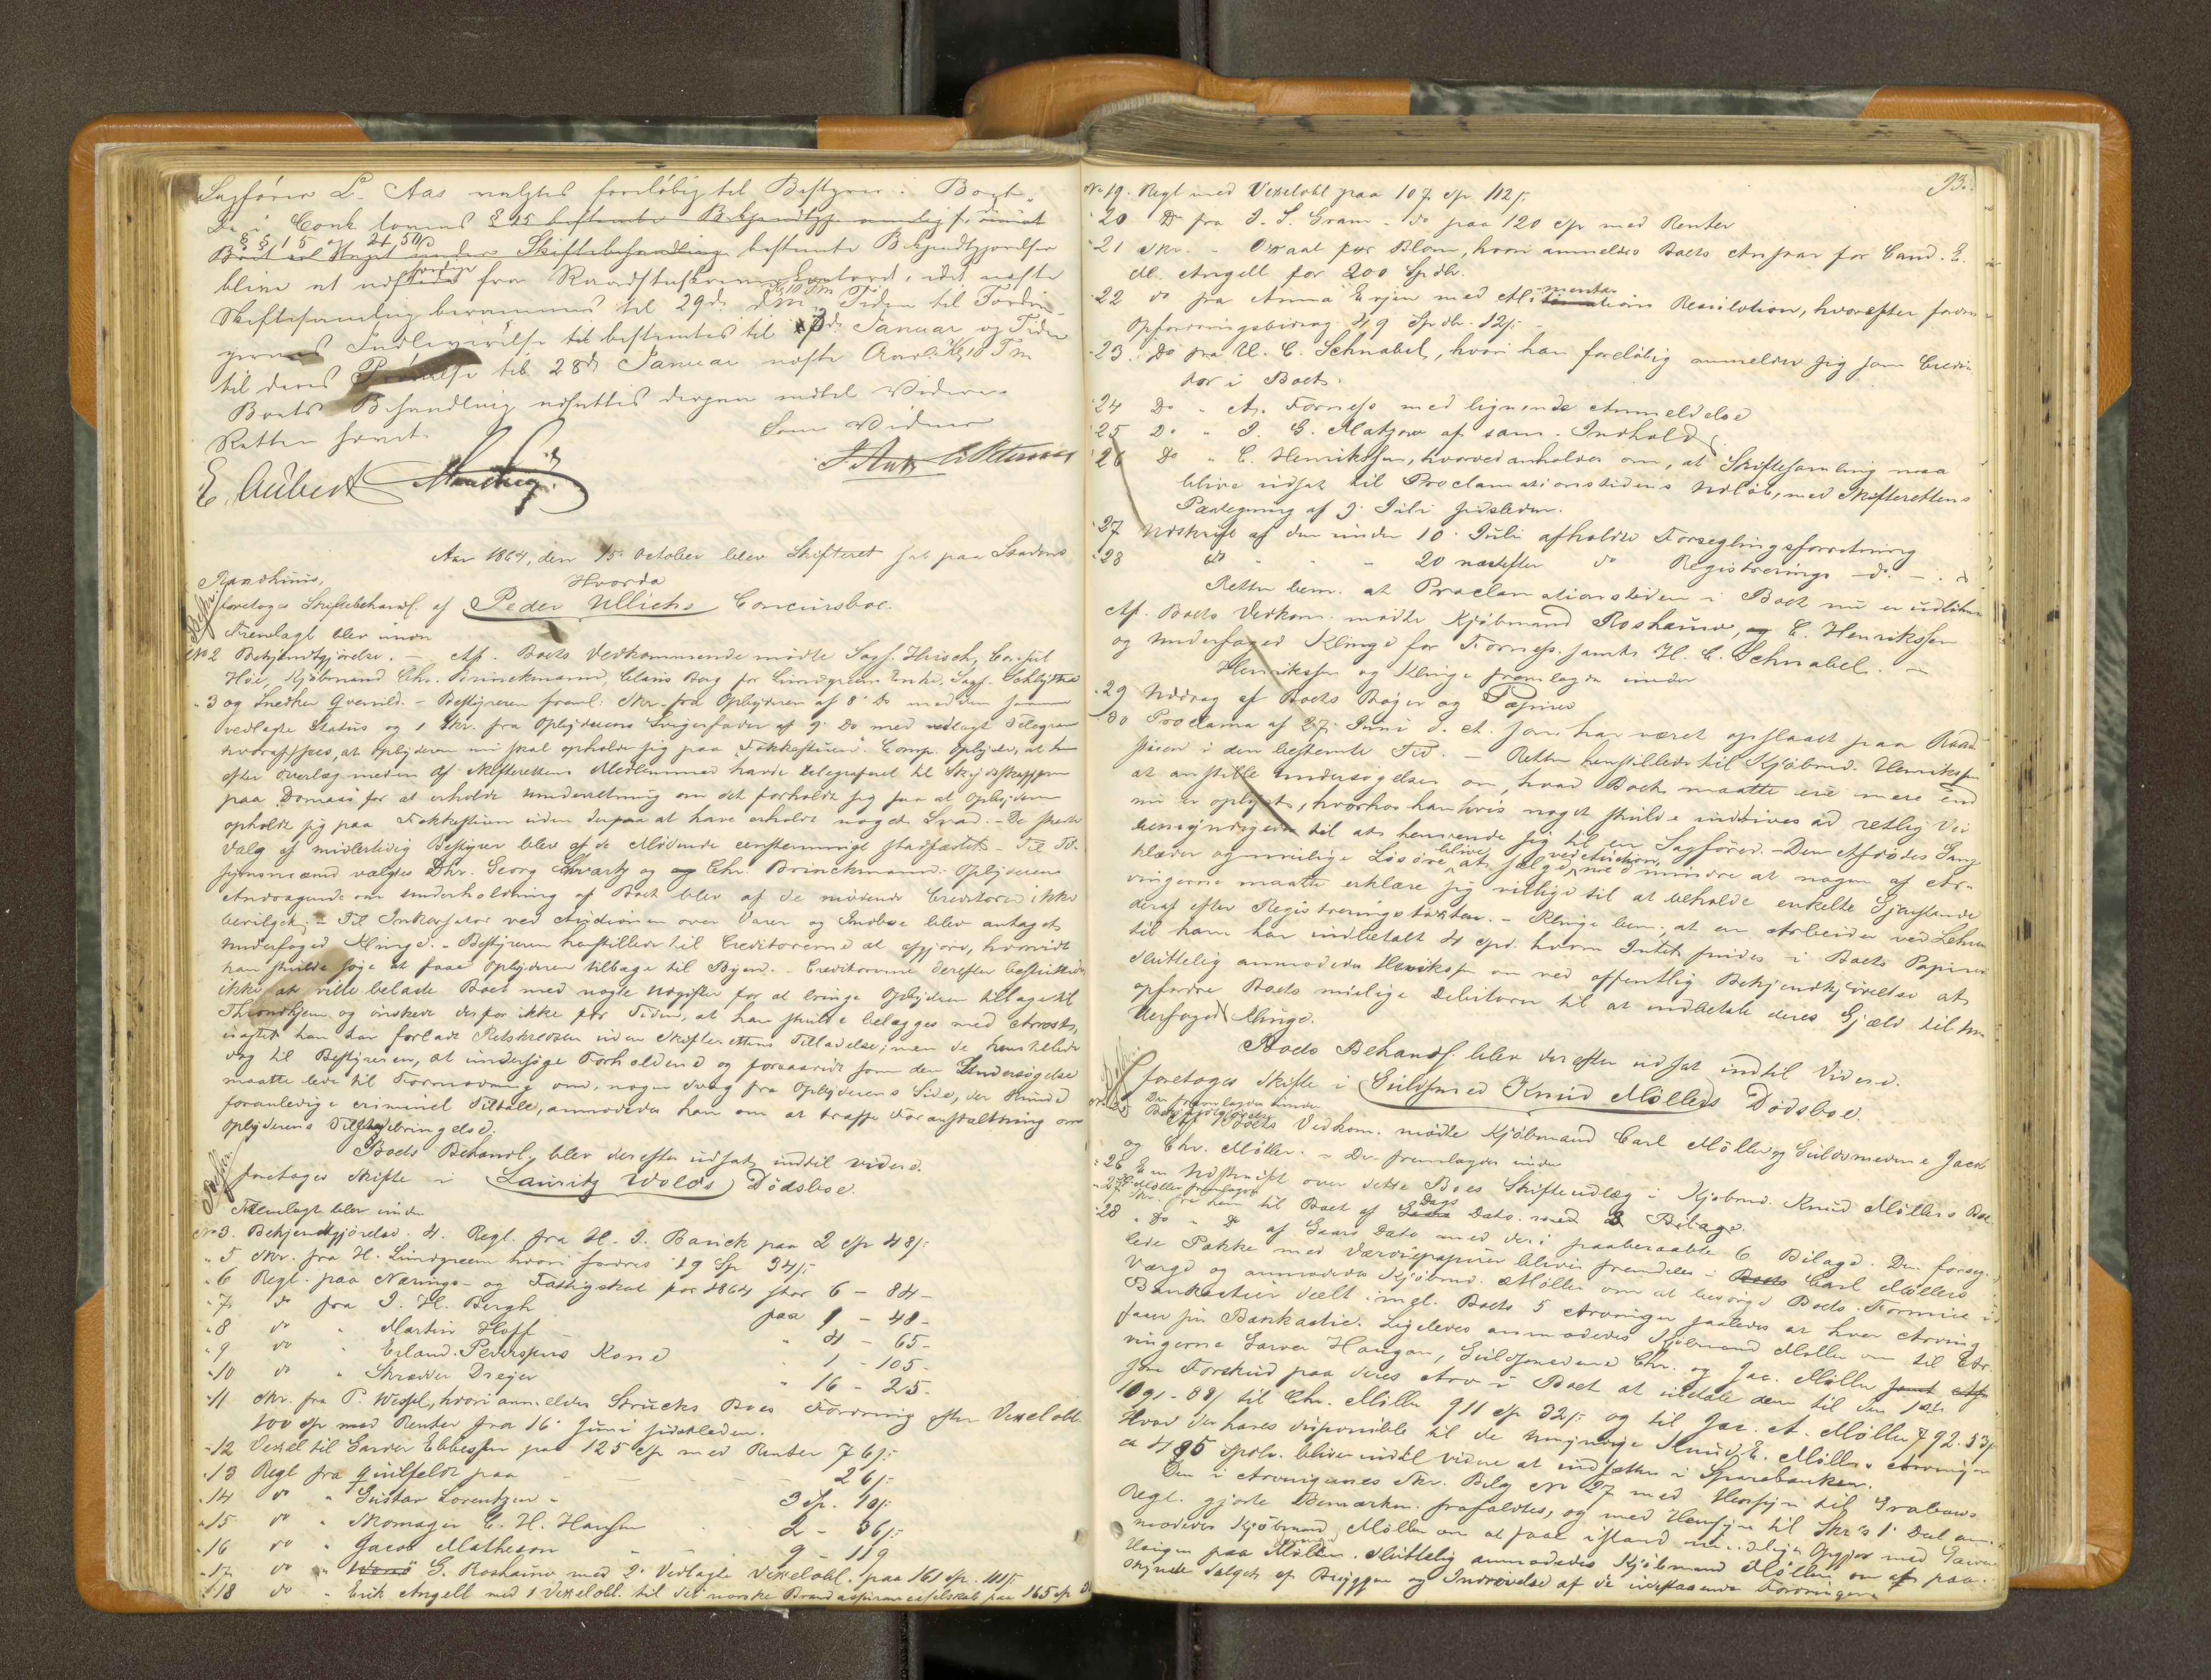 Sagfører L. Aas valgtes foreløbig til Bestyrer. Boet
De i Conk lovens § 25 bestemte Bekjendtgj
§ § 15 og 21, 50
Boet under Skiftebehandling bestemte Bekjendtgjørelser
blive at udstede fra Raadstuskriver Contoret, idet næste
Kl 10 Fm
Skiftesamling berammes til 29de dM, Tiden til Fordrin
gernes Indlevering bestemtes til 7de Januar og Tiden
til deres Prøvelse til 28de Januar næste Aar Kl 10 Fm
Boets Behandling udsattes derpaa indtil Videre
Retten hævet.
Som Vidner
E. Aubert
Aar 1864, den 15. October blev Skifteret sat paa Stadens
Raadhuus, Hvorda
foretoges Skiftebehandl. af Peder Ullichs Concursboe.
Fremlagt blev under
No 2 Bekjendtgjørelse. – Af Boets Vedkommende mødte Sagf. Hirsch, Consul
Høe, Kjøbmand Chr. Brinckmann, Claus Borg for Lundgreens Enke, Sagf. Schlytter
" 3 og Snedker Qvernild. – Bestyreren freml. Skr. fra Opbyderen af 8de Do med den
vedlagte Status og 1 Skr. fra Opbyderens Svigerfader af 9de Do med vedlagt Telegram
hvoraf sees, at Opbyderen nu skal opholde sig paa Fokkestuen. Comp. oplyste, at han
efter Overlæg med en af Skifterettens Medlemmer havde telegraferet til Skydsskafferen
paa Domaas for at erholde Underretning om det forholdt sig saa at Opbyderen
opholdt sig paa Fokkestuen uden derpaa at have erholdt noget Svar. – De
Valg af midlertidig Bestyrer blev af de Mødende eenstemmigt stadfæstet – Til Til-
synsmænd valgtes Dhr. Georg Schwartz og Chr. Brinckmann. Opbyderens
Andragende om Underholdning af Boet blev af de mødende Creditorer ikke
bevilget. – Til Inkassator ved Auctionen over Varer og Indboe blev antaget
Underfoged Klinge. – Bestyreren henstillede til Creditorerne at afgjøre, hvorvidt
han skulde søge at faae Opbyderen tilbage til Byen. – Creditorerne derefter besluttede
ikke at ville belaste Boet med nogle Udgifter for at bringe Opbyderen tilbage til
Throndhjem og ønskede derfor ikke for Tiden, at han skulde belægges med Arrest,
uagtet han har forladt Retskredsen uden Skifterettens Tilladelse; men de henstillede
dog til Bestyreren, at undersøge Forholdene og forsaavidt som den Undersøgelse
maatte lede til Formodning om, nogen Svig fra Opbyderens Side, der kunde
foranledige criminel Tiltale, anmodedes han om at træffe Foranstaltning om
Opbyderens Tilstedebringelse.
Boets Behandl. blev derefter udsat indtil videre.
foretoges Skifte i Lauritz Wolds Dødsboe.
Fremlagt blev under
No 3. Bekjendtgjørelse. 4. Regl. fra H. J. Banck paa 2 Sp 48/:
" 5 Skr. fra H. Lundgreen hvori fordres 19 Sp 34/:
" 6 Regl. paa Nærings- og Fattigskat for 1864 stor 6 – 84 –
" 7 do fra J. H. Bergh paa 1 – 48 –
" 8 do " Martin Hoff " 4 – 65 –
" 9 do " Erland Pederssens Kone " 1 – 105 –
" 10 do " Skrædder Dreyer " 16 – 25 –
" 11 Skr. fra P. Wessel, hvori anmeldes Strucks Boes Fordring efter Vexelobl.
100 Sp med Renter fra 16. Juni sidstleden.
" 12 Vexel til Garver Ebbesen paa 125 Sp med Renter 76/:
" 13 Regl fra Qvilfeldt paa – – – – 26/:
" 14 do " Gustav Lorentzen – 3 Sp. 10/:
" 15 do " Skomager C. H. Hansen 2 – 36/:
" 16 do " Jacob Matheson 9 – 119
" 17 do " G. Roshauw med 2 Vedlagte Vexelobl. paa 161 Sp.
" 18 do " Erik Angell med 1 Vexelobl. til det norske Brandassuranceselskab paa 165 Sp
93.
No 19. Regl med Vexelobl paa 107 Sp 112/:
" 20 Do fra J. S. Gram – do paa 120 Sp med Renter
" 21 Skr. – Overaal for Blom, hvori anmeldes Boets Ansvar for Cand. E.
M. Angell for 200 Spdlr.
" 22 do fra Anna Evjen med Alimentations Resolution, hvorefter fordres
Opfostringsbidrag 49 Spdlr. 12/: –
" 23. Do fra U. C. Schnabel, hvori han foreløbig anmelder sig som Credi-
tor i Boet.
" 24 Do " A. Forness med lignende Anmeldelse
" 25 Do " J. G. Matzow af sam. Indhold
" 26 Do " C. Henriksen, hvorved anholdes om, at Skiftesamling maa
blive udsat til Proclamationstidens Udløb, med Skifterettens
Paategning af 9. Juli sidstleden.
" 27 Udskrift af den under 10. Juli afholdte Forseglingsforretning
" 28 do – – 20 næstefter do Registrerings – do –
Retten bem. at Proclamationstiden i Boet nu er udløben
Af Boets Vedkom. mødte Kjøbmand Roshauw, og C. Henriksen
og Underfoged Klinge for Forness. samt H. C. Schnabel. –
Henriksen og Klinge fremlagde under
" 29 Uddrag af Boets Bøger og Papirer
" 30 Proclama af 27. Juni d. A. som har været opslaaet paa Raad-
stuen i den bestemte Tid. – Retten henstillede til Kjøbmd. Henriksen
at anstille Undersøgelser om, hvad Boet maatte eie mere end
nu er oplyst, hvorhos han hvis noget skulde inddrives ad retlig Vei
bemyndigedes til at henvende sig til en Sagfører. – Den Afdødes Gang-
klæder og muelige Løsøre blive at sælge ved Auction, med mindre at nogen af Ar-
vingerne maatte erklære sig villige til at beholde enkelte Gjenstande
deraf efter Registreringstaxten. – Klinge bem. at en Arbeider ved Lehn
til ham har indbetalt 4 Spd. hvorom Intet findes i Boets Papirer
Sluttelig anmodedes Henriksen om ved offentlig Bekjendtgjørelse at
opfordre Boets muelige Debitorer til at indbetale deres Gjæld til Un-
derfoged Klinge.
Boets Behandl. blev derefter udsat indtil Videre.
foretoges Skifte i Guldsmed Knud Møllers Dødsboe.
Der fremlagdes under
Bekjendtgjørelse
Af Boets Vedkom. mødte Kjøbmand Carl Møller og Guldsmedene Jacob
og Chr. Møller. – De fremlagde under
" 26 En Udskrift over dette Boes Skifteudlæg i Kjøbmd. Knud Møllers Boe
" 27 Skr. fra ham til Boet af Dags Dato med 3 Bilage.
" 28 " Do " Do af Gaars Dato med deri paaberaabte 6 Bilage. Den forseg-
lede Pakke med Værdiepapirer bliver fremdeles i Carl Møllers
Værge og anmodedes Kjøbmd. Møller om at besørge Boets Formue i
Bankactier deelt imel. Boets 5 Arvinger saaledes at hver Arving
faaer sin Bankactie. Ligeledes anmodedes Kjøbmand Møller om til Ar-
vingerne Garver Haugan, Guldsmedene Chr. og Jac. Møller
som Forskud paa deres Arv i Boet at udetale dem til den 1ste
1091 – 88/ til Chr. Møller 911 Sp 32/: og til Jac. A. Møller 792. 53/
Hvad der haves disponible til de umyndige Knud E. Møllers Arvinger
ca 485 Spdlr. bliver indtil videre at indsætte i Sparebanken.
Den i Arvingernes Skr. Bilag No 27 med Hensyn til Grabows
Regl. gjorte Bemærkn. frafaldtes, og med Hensyn til Skr's 1. Deel an-
modedes Kjøbmand Møller om at faae istand Opgjør med Garver
Haugan paa Møllen. Sluttelig anmodedes Kjøbmand Møller om at paa-
skynde Salget af Bryggen og Inddrivelse af de udestaaende Fordringer